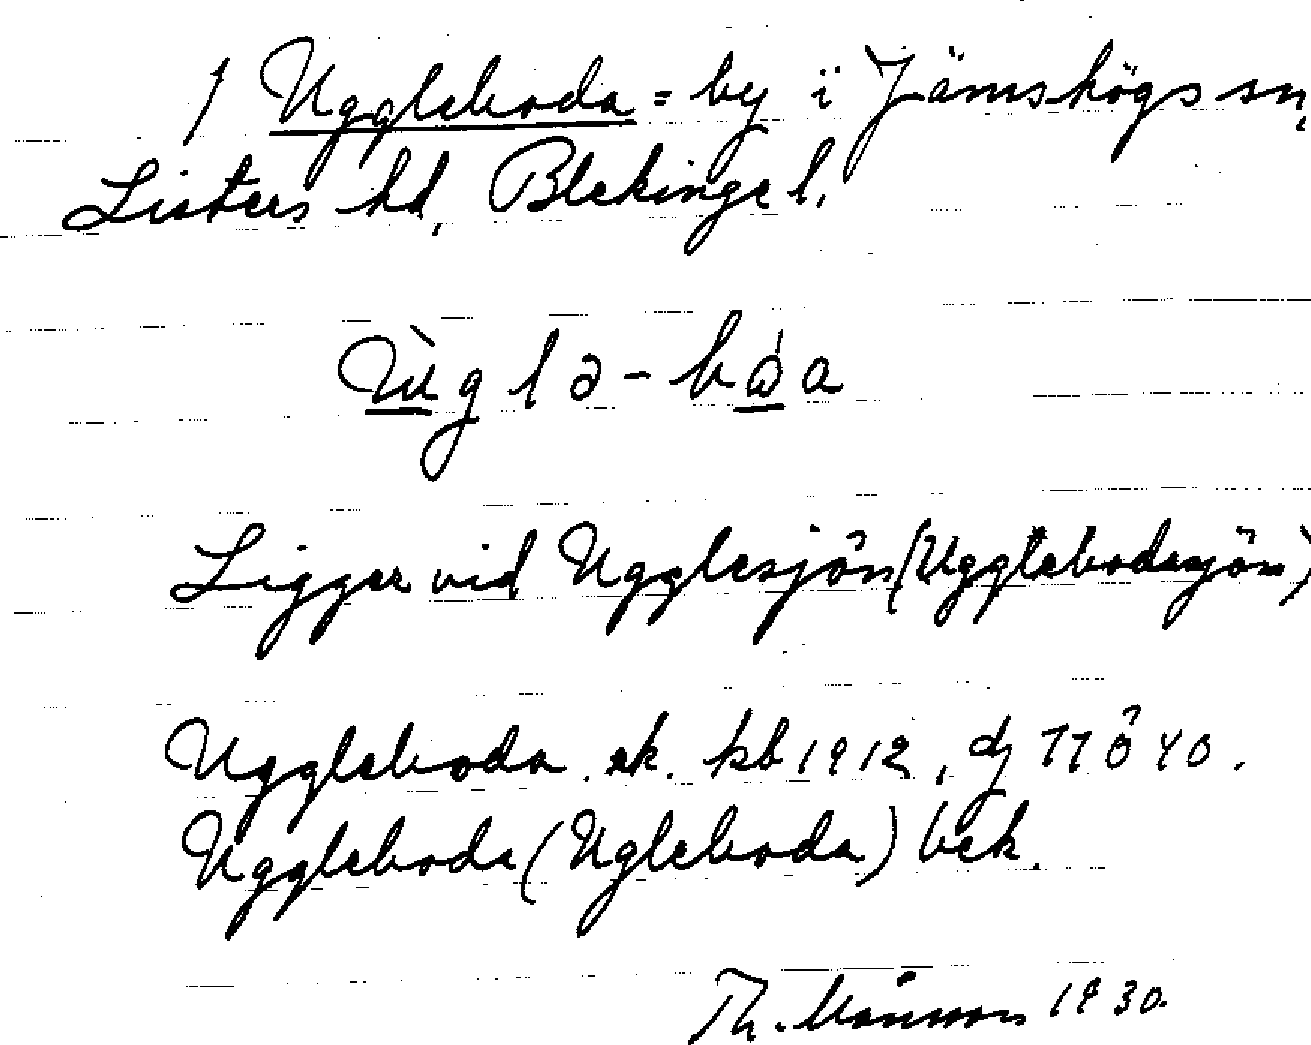 / Uggleboda = by i Jämshögs sn,
Listers hd, Blekinge l.
Ùglə-bo̊̀a
Ligger vid Ugglesjön (Ugglebodasjön)
Uggleboda ek. kb 1912,
Uggleboda (Ugleboda) bek.
Th. Månsson 1930.